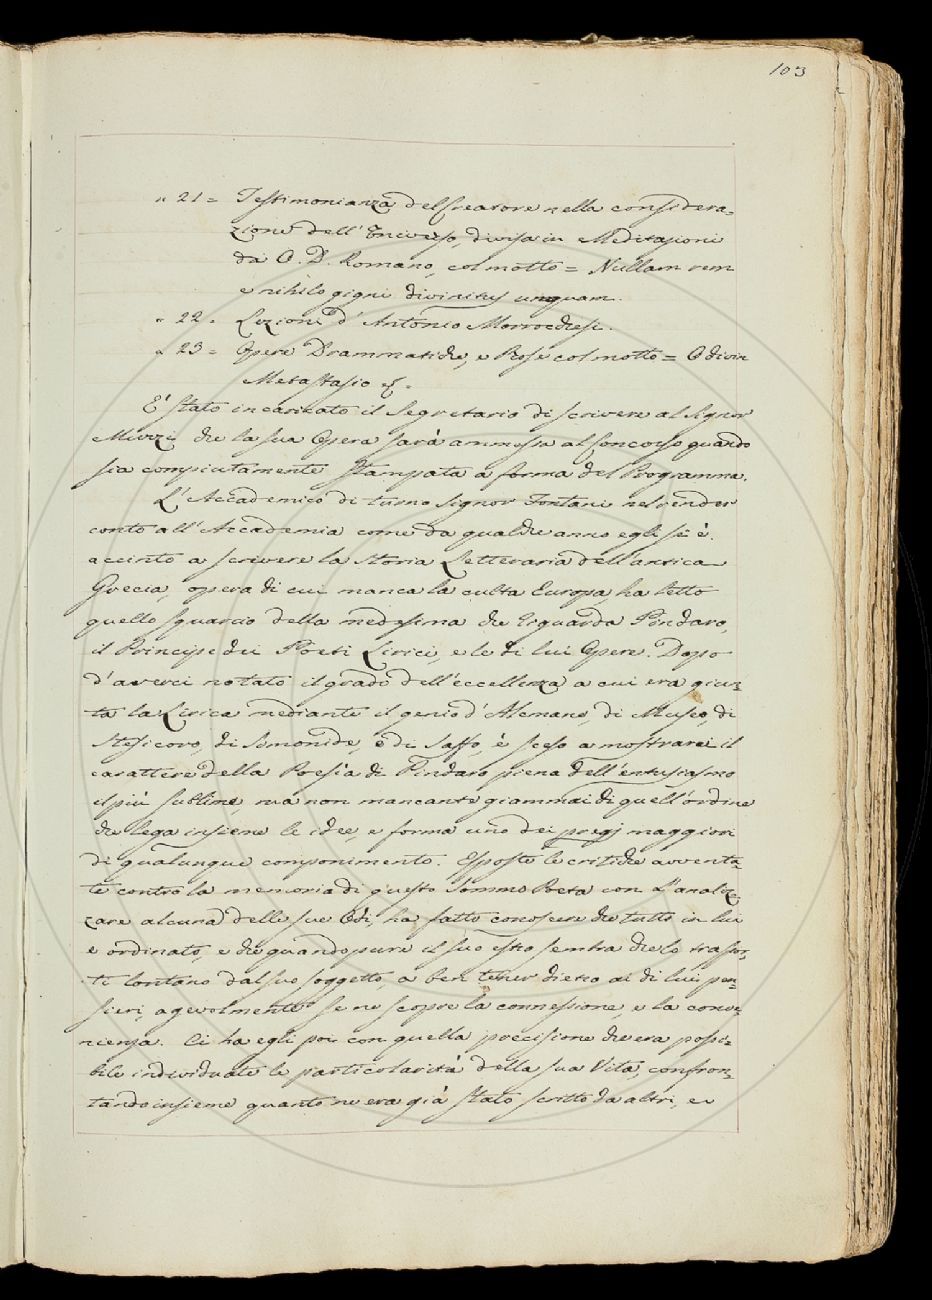 103
" 21 = Testimonianza del Creatore nella considera=
zione dell'Universo, divisa in Meditazioni
da O. D. Romano, col motto = Nullam rem
e nihilo gigni divinitus unquam.
" 22 = Lezioni d'Antonio Morrocchesi.
" 23 = Opere Drammatiche, e Prose col motto = O divin
Metastasio &.
E' stato incaricato il Segretario di scrivere al Signor
Micozzi che la sua Opera sarà ammessa al Concorso quando
sia compiutamente stampata a forma del Programma.
L'Accademico di turno Signor Fontani nel render
conto all'Accademia come da qualche anno egli si è
accinto a scrivere la Storia Letteraria dell'antica
Grecia, opera di cui manca la culta Europa, ha letto
quello squarcio della medesima che riguarda Pindaro,
il Principe dei Poeti Lirici, e le di lui Opere. Dopo
d'averci notato il grado dell'eccellenza a cui era giun=
ta la Lirica mediante il genio d'Alcmane, di Museo, di
Stesicoro, di Simonide, e di Saffo, è sceso a mostrarci il
carattere della Poesia di Pindaro piena dell'entusiasmo
il più sublime, ma non mancante giammai di quell'ordine
che lega insieme le idee, e forma uno dei pregj maggiori
di qualunque componimento. Esposte le critiche avventa=
te contro la memoria di questo sommo Poeta con l'analiz=
zare alcuna delle sue Odi, ha fatto conoscere che tutto in lui
e ordinato, e che quando pure il suo estro sembra che lo traspor=
ti lontano dal suo soggetto, a ben tener dietro ai di lui pen=
sieri, agevolmente se ne scopre la connessione, e la conve=
nienza. Ci ha egli poi con quella precisione che era possi=
bile individuate le particolarità della sua Vita, confron=
tando insieme quanto ne era già stato scritto da altri, e